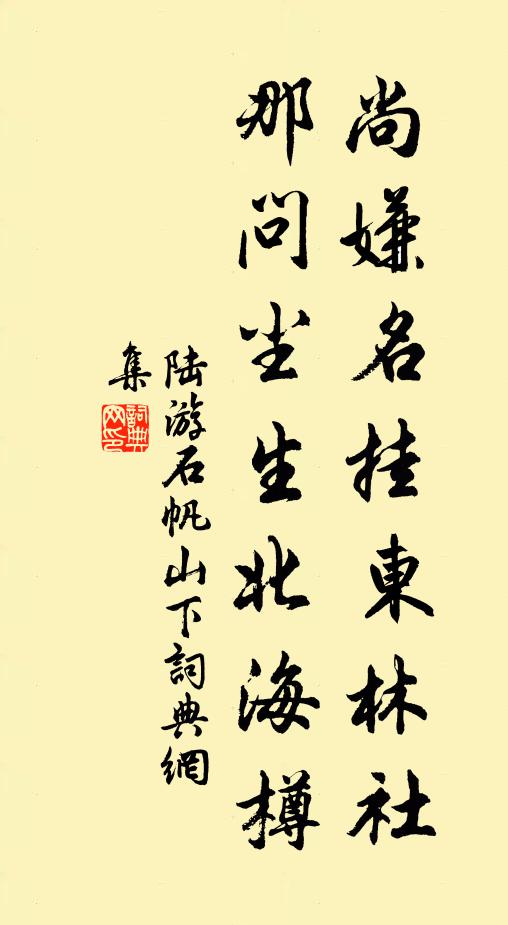 尚嫌名挂東林社
那问尘生北海樽
陆游石帆山下詞典網
集
詞典网印